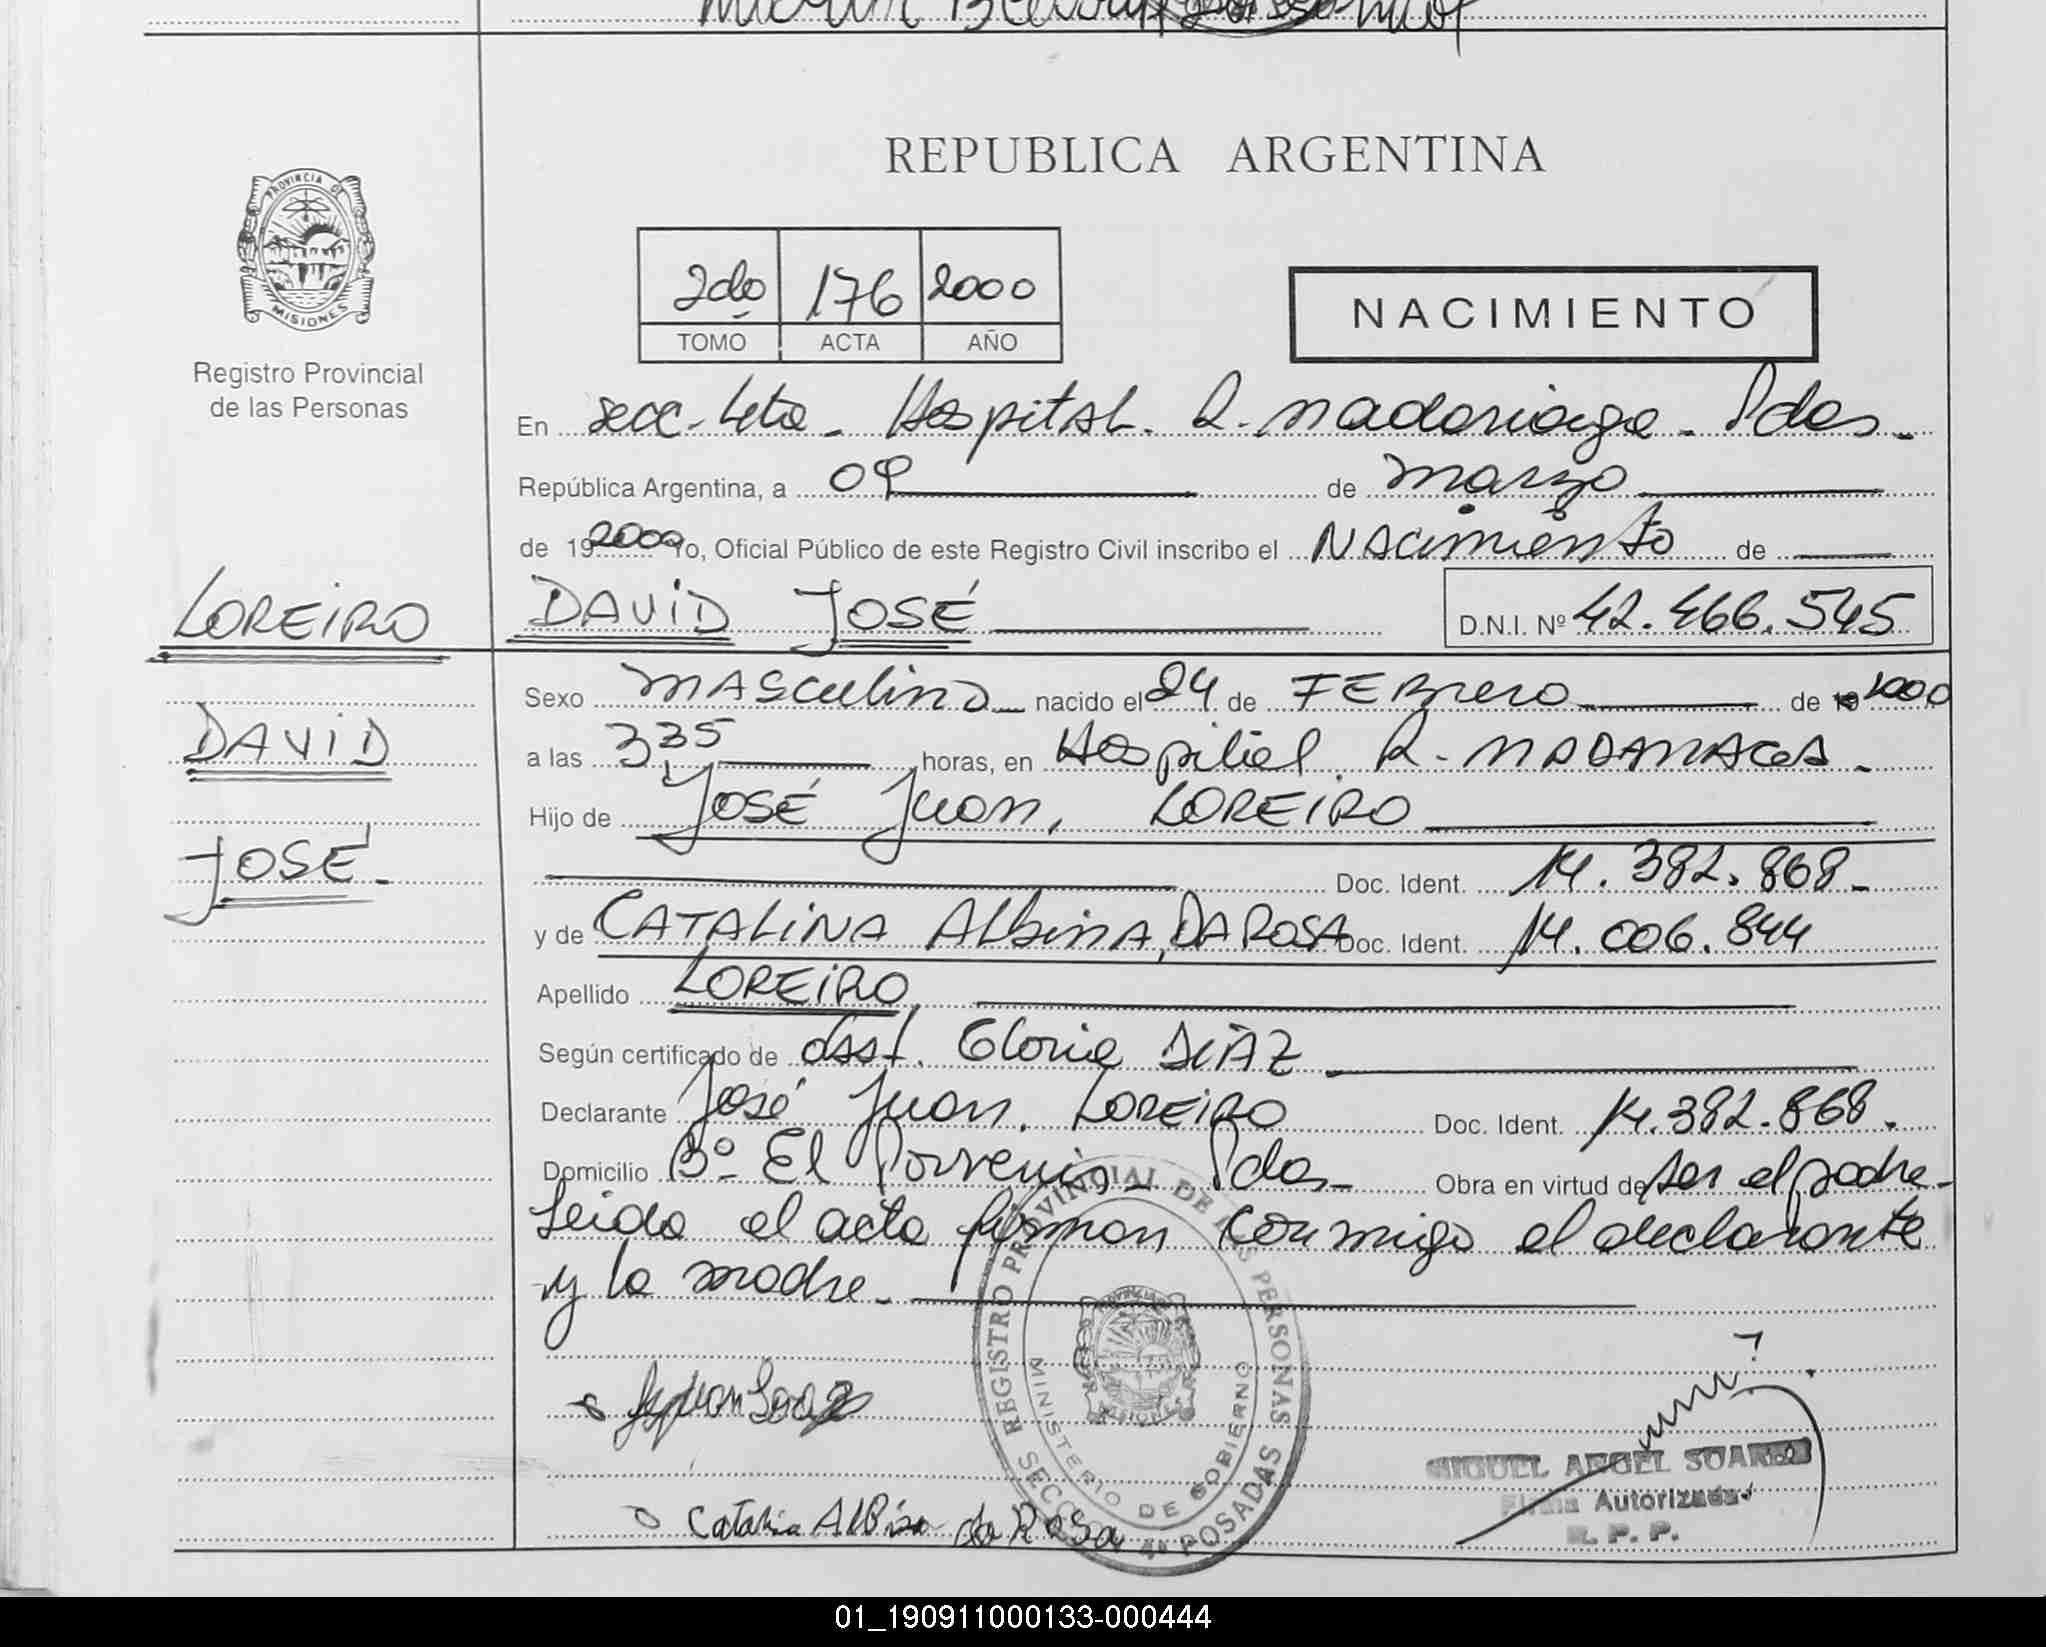 PROVINCIA DE
MISIONES
Registro Provincial
de las Personas
REPUBLICA ARGENTINA
2do 176 2000
TOMO ACTA AÑO
NACIMIENTO
En secc. 4ta - Hospital. R. Madariaga - Pdas -
República Argentina, a 09 de marzo
de 19 2000 Yo, Oficial Público de este Registro Civil inscribo el Nacimiento de
LOREIRO
DAVID JOSÉ
D.N.I. Nº 42.466.545
Sexo masculino nacido el 24 de FEBRERO de 19 2000
DAVID
a las 3,35 horas, en Hospital. R. MADARIAGA -
Hijo de JOSÉ Juan, LOREIRO
JOSÉ -
Doc. Ident. 14.382.868 -
y de CATALINA Albina, DA ROSA Doc. Ident. 14.006.844
Apellido LOREIRO
Según certificado de Obst. Gloria DIAZ
Declarante José Juan. LOREIRO Doc. Ident. 14.382.868.
Domicilio Bº El Porvenir - Pdas - Obra en virtud de ser el padre -
Leida el acta firman conmigo el declarante
y la madre -
REGISTRO PROVINCIAL DE LAS PERSONAS
MINISTERIO DE GOBIERNO
MISIONES
4ª POSADAS
MIGUEL ANGEL SUAREZ
Firma Autorizada
R. P. P.
Catalina Albina da Rosa
01_190911000133-000444